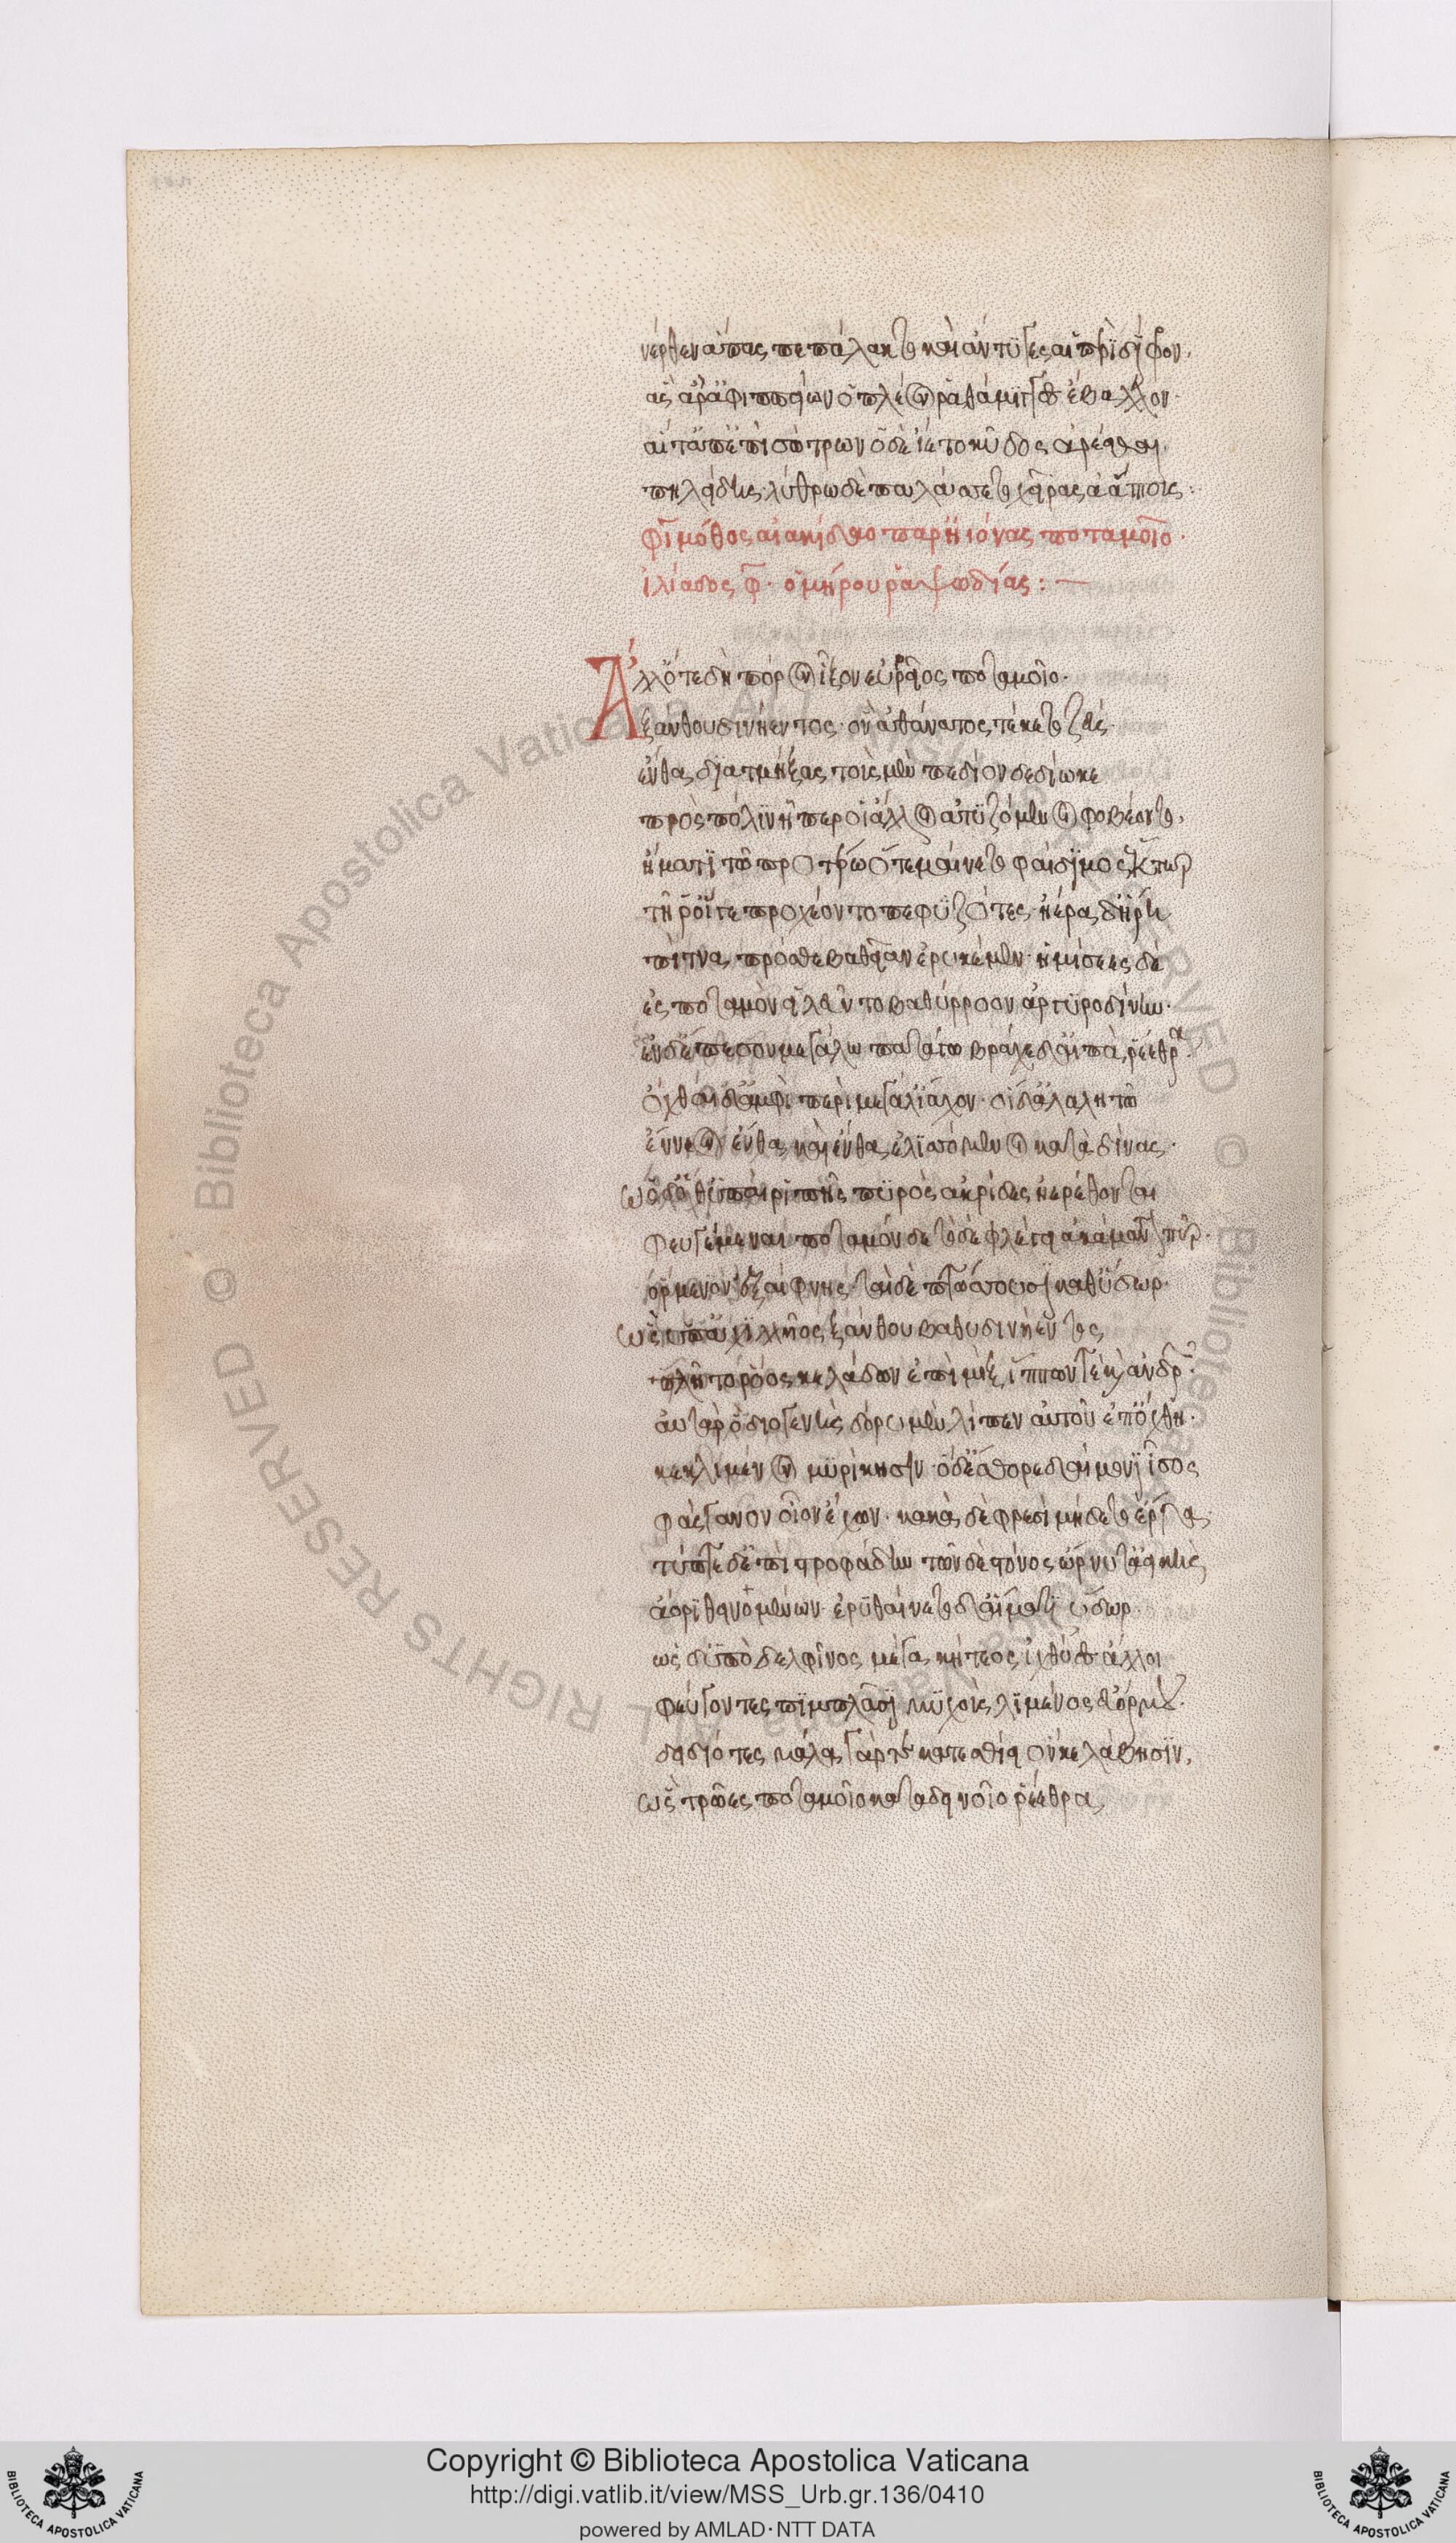 νέρθεν ἅπας πεπάλακτο καὶ ἄντυγες αἳ περὶ δίφρον,
ἃς ἄρ' ἀφ' ἱππείων ὁπλέων ῥαθάμιγγες ἔβαλλον·
αἵ τ' ἀπ' ἐπισσώτρων ὁ δὲ ἵετο κῦδος ἀρέσθαι·
πηλείδης· λύθρω δὲ παλάσσετο χεῖρας ἀάπτους:
φῖ μόθος αἰακίδαο παρ' ἠϊόνας ποταμοῖο·
ἰλιάδος φ· ὁμήρου ῥαψωδίας:
Ἀλλ' ὅτε δὴ πόρον ἷξον ἐϋρρεῖος ποταμοῖο·
ξάνθου δινήεντος· ὃν ἀθάνατος τέκετο ζεύς·
ἔνθα διατμήξας τοὺς μὲν πεδίον δὲ δίωκε
πρὸς πόλιν ᾗπερ οἱ ἄλλοι ἀτυζόμενοι φοβέοντο,
ἤματι τῷ προτέρω ὅτε μαίνετο φαίδιμος ἕκτωρ
τῇ ῥ' οἵγε προχέοντο πεφυζότες· ἠέρα δ' ἥρη
πίτνα πρόσθε βαθεῖαν ἐρυκέμεν· ἡμίσεες δὲ
ἐς ποταμὸν εἰλεῦντο βαθύρροον ἀργυροδίνην·
ἐν δ' ἔπεσον μεγάλω πατάγω βράχε δ' αἰπὰ ῥέεθρα·
ὄχθαι δ' ἀμφὶ περὶ μεγάλ' ἴαχον· οἱ δ' ἀλαλητῷ
ἔννεον ἔνθα καὶ ἔνθα ἑλισσόμενοι κατὰ δίνας·
ὡς δ' ὅθ' ὑπαὶ ριπῆς πυρὸς ἀκρίδες ἠερέθονται
φευγέμεναι ποταμόνδε τὸ δὲ φλέγει ἀκάματον πῦρ·
ὄρμενον ἐξαίφνης· ταὶ δὲ πτώσσουσι καθ' ὕδωρ·
ὣς ὑπ' ἀχιλλῆος ξάνθου βαθυδινήεντος
πλῆτο ῥόος κελάδων ἐπιμὶξ ἵππων τε καὶ ἀνδρῶν·
αὐτὰρ ὁ διογενὴς δόρυ μὲν λίπεν αὐτοῦ ἐπ' ὄχθῃ·
κεκλιμένον μυρίκησιν· ὁ δ' ἔσθορε δαίμονι ἶσος
φάσγανον οἶον ἔχων· κακὰ δὲ φρεσὶ μήδετο ἔργα·
τύπτε δ' ἐπιστροφάδην τῶν δὲ στόνος ὤρνυτ' ἀεικὴς
ἄορι θεινομένων· ἐρυθαίνετο δ' αἵματι ὕδωρ·
ὡς δ' ὑπὸ δελφῖνος μεγακήτεος ἰχθύες ἄλλοι
φεύγοντες πιμπλᾶσι μυχοὺς λιμένος εὐόρμου·
δειδιότες μάλα γάρ τε κατεσθίει ὅν κε λάβησιν,
ὣς τρῶες ποταμοῖο κατὰ δεινοῖο ῥέεθρα
Copyright © Biblioteca Apostolica Vaticana
http://digi.vatlib.it/view/MSS_Urb.gr.136/0410
powered by AMLAD·NTT DATA